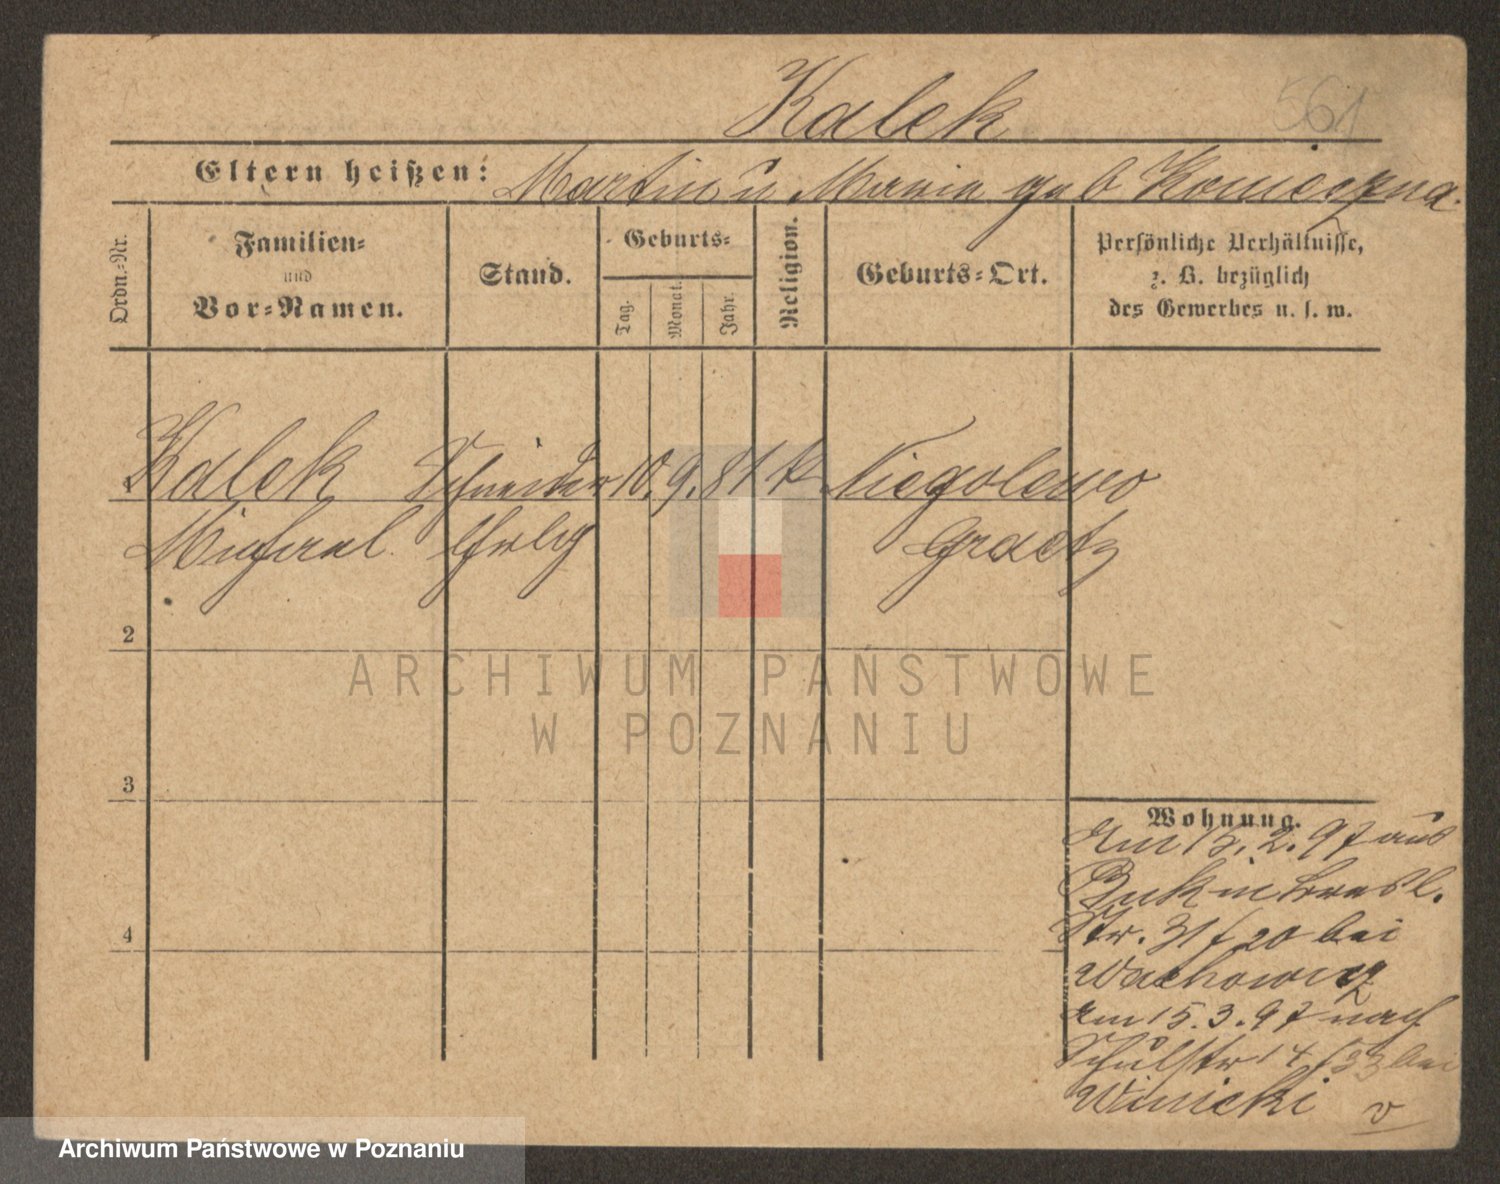 Kalek 561
Eltern heißen: Martin u Maria geb Konieczna.
Ordn.=Nr.
Familien=
und
Vor=Namen.
Stand.
Geburts=
Tag.
Monat.
Jahr.
Religion.
Geburts=Ort.
Persönliche Verhältnisse,
z. B. bezüglich
des Gewerbes u. s. w.
Kalek Schneider 10. 9. 81 k Niegolewo
Michael Grætz
2
ARCHIWUM PAŃSTWOWE
W POZNANIU
3
4
Wohnung.
Am 15. 2. 97 aus
Buk in Bresl.
Str. 31 / 20 bei
Wachowicz
Am 15. 3. 97 nach
Schulstr 14 / 33 bei
Winicki v
Archiwum Państwowe w Poznaniu